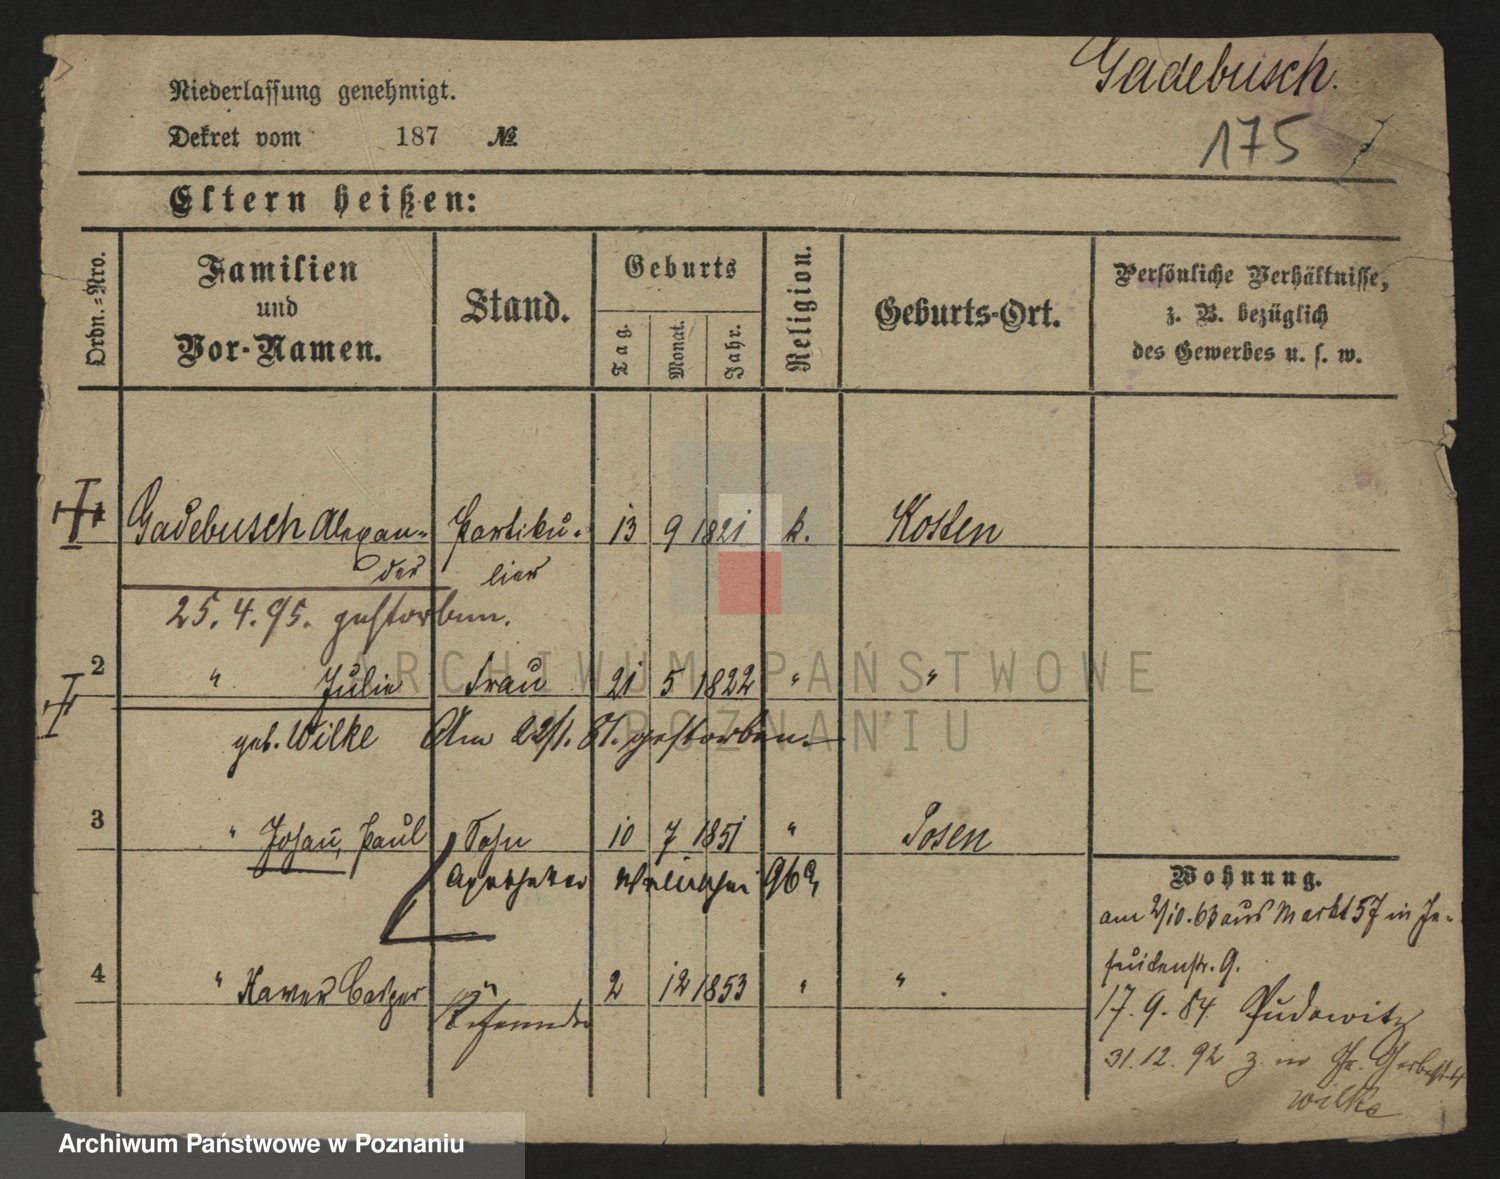 Gadebusch.
175
Niederlassung genehmigt.
Dekret vom 187 №
Eltern heißen:
Ordn.-Nro.
Familien und Vor-Namen.
Stand.
Geburts
Tag. Monat. Jahr.
Religion.
Geburts-Ort.
Persönliche Verhältnisse,
z. B. bezüglich
des Gewerbes u. s. w.
1 Gadebusch Alexan- Partiku- 13 9 1821 k. Kosten
der lier
25.4.95. gestorben.
2 " Julie Frau 21 5 1822 " "
geb. Wilke Am 22/1. 81. gestorben.
3 " Johan, Paul Sohn 10 7 1851 " Posen
Apotheker 96
4 " Xaver Casper " 2 12 1853 " "
Referendar
Wohnung.
am 2/10.63 aus Markt 57 in Je-
suitenstr. 9.
17.9.84 Pudewitz
31.12.92 z. in
Wilke
ARCHIWUM PAŃSTWOWE
W POZNANIU
Archiwum Państwowe w Poznaniu